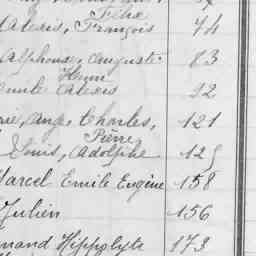 Félix
Alexis, François 74
Alphonse, Auguste 83
Henri
Emile Alexis 92
Ange Charles, 121
Pierre
Louis, Adolphe 125
Marcel Emile Eugène 158
Julien 156
Hippolyte 173